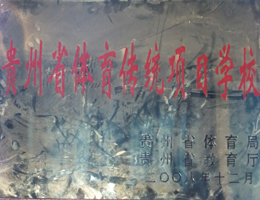 贵州省体育传统项目学校
贵州省体育局
贵州省教育厅
二〇〇八年十二月